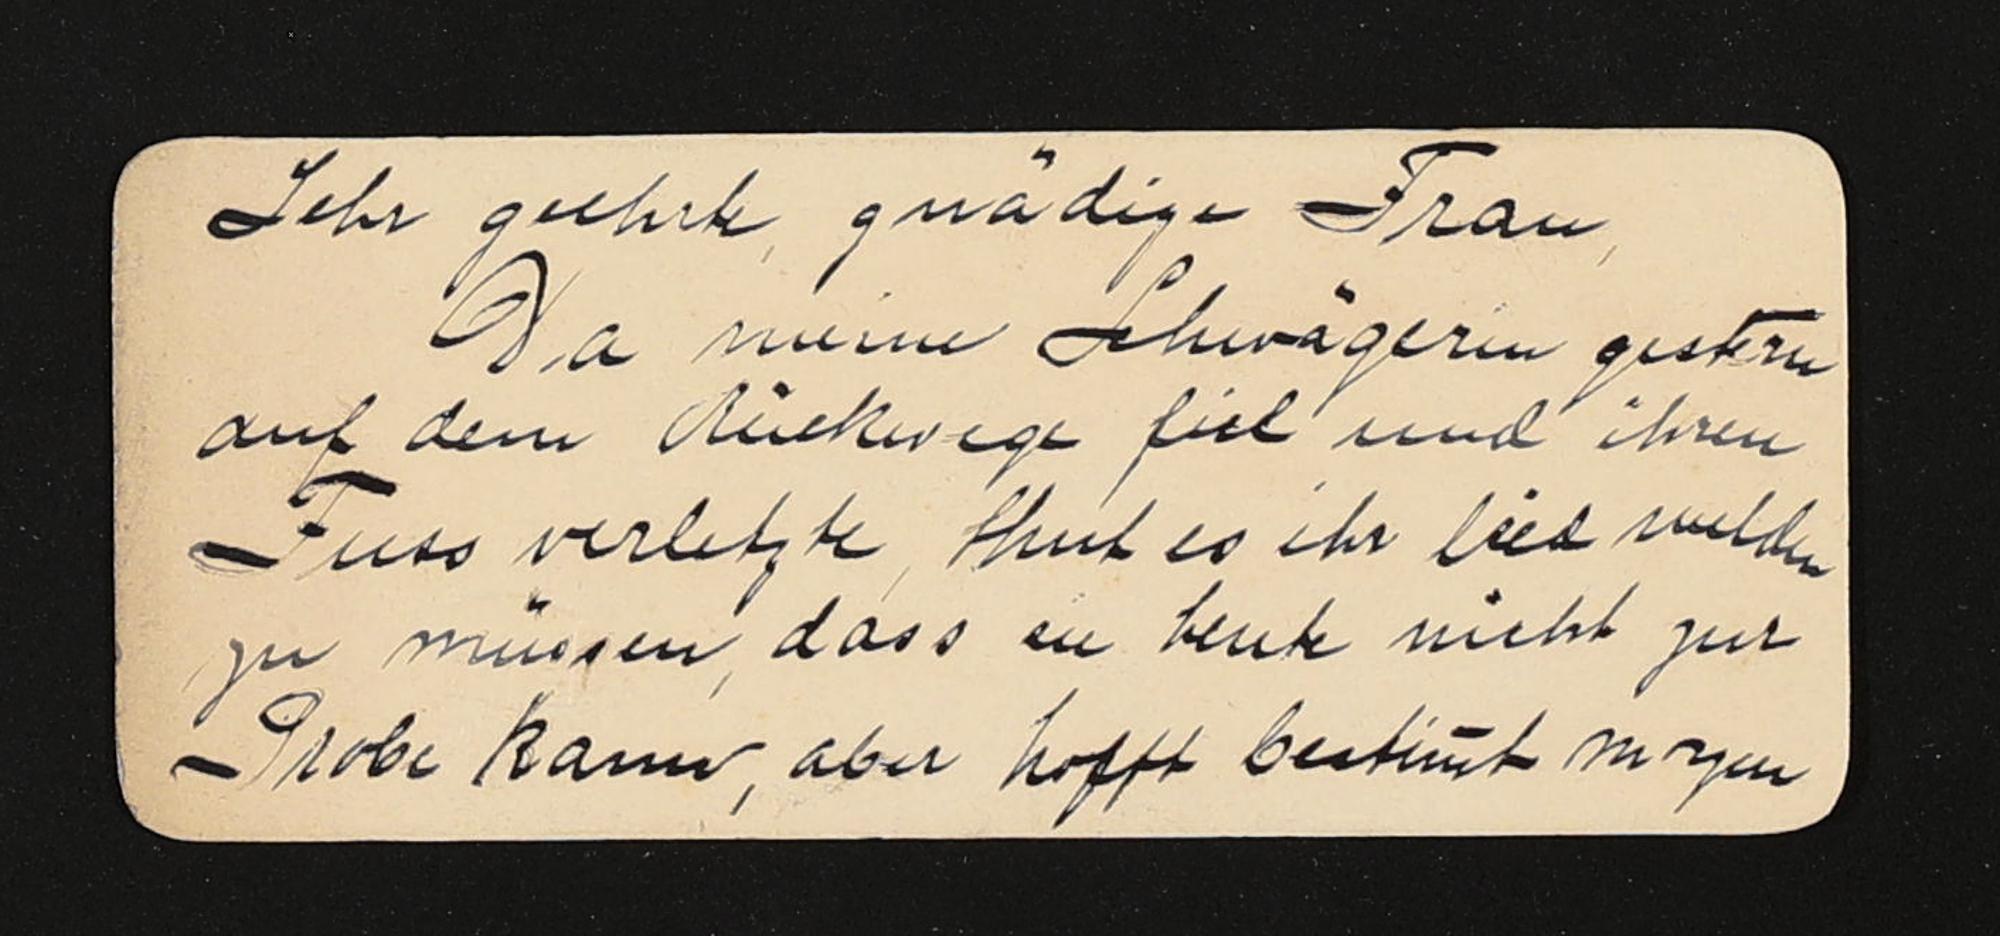 Sehr geehrte, gnädige Frau,
Da meine Schwägerin gestern
auf dem Rückwege fiel und ihren
Fuss verletzte, thut es ihr leid melden
zu müssen, dass sie heute nicht zur
Probe kann, aber hofft bestim̅t morgen